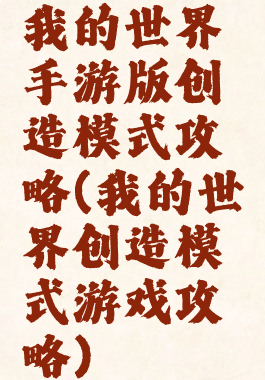 我的世界
手游版创
造模式攻
略(我的世
界创造模
式游戏攻
略)